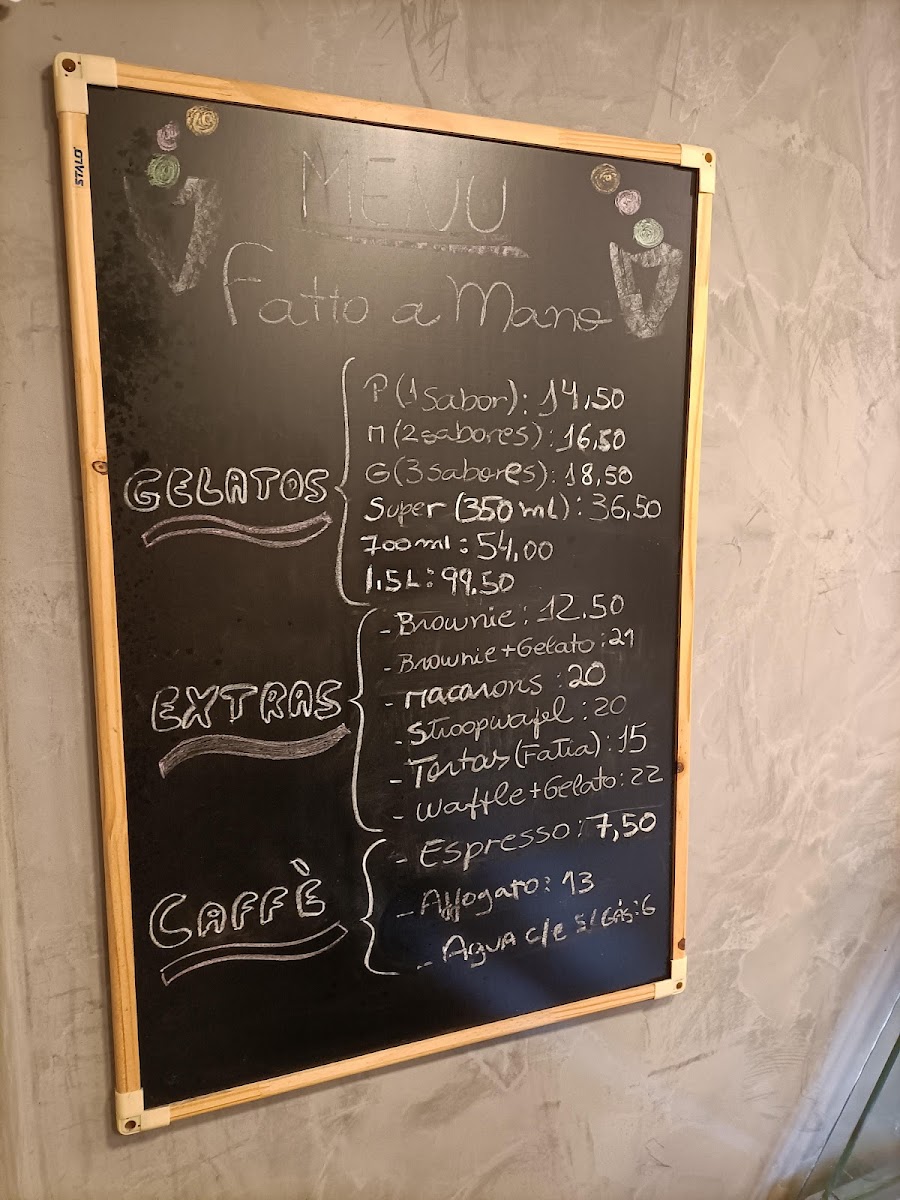 STALO
MENU
Fatto a Mano
GELATOS
P (1 sabor): 14,50
M (2 sabores): 16,50
G (3 sabores): 18,50
Super (350 ml): 36,50
700 ml: 54,00
1,5L: 99,50
EXTRAS
- Brownie: 12,50
- Brownie + Gelato: 21
- Macarons: 20
- Stroopwafel: 20
- Tortas (Fatia): 15
- Waffle + Gelato: 22
CAFFÈ
- Espresso: 7,50
- Affogato: 13
- Agua c/e S/ GÁS: 6